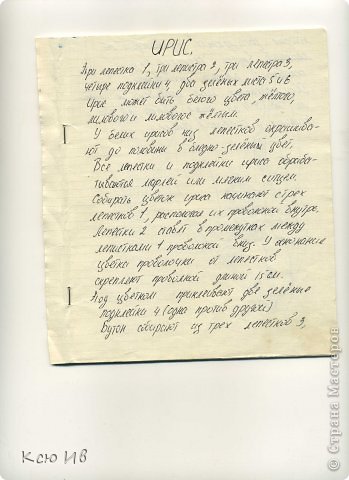 ИРИС.
Три лепестка 1, три лепестка 2, три лепестка 3,
четыре подклейки 4, два зелёных листа 5 и 6
Ирис может быть белого цвета, жёлтого,
лилового и лилового с жёлтым.
У белых ирисов низ лепестков окрашива-
ют до половины в бледно-зелёный цвет.
Все лепестки и подклейки ириса обраба-
тываются марлей или мягким ситцем.
Собирать цветок ириса начинают с трех
лепестков 1, располагая их проволокой внутрь.
Лепестки 2 ставят в промежутках между
лепестками 1 проволокой вниз. У основания
цветка проволочки от лепестков
скрепляют проволкой длиной 15 см.
Под цветком приклеивают две зелёные
подклейки 4 (одна против другой)
Бутон собирают из трех лепестков 3,
Ксю ИВ
© Страна Мастеров